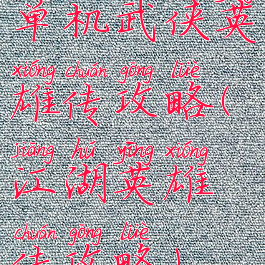 单机武侠英
xióng chuán gōng lüè
雄传攻略(
jiāng hú yīng xióng
江湖英雄
chuán gōng lüè
传攻略)